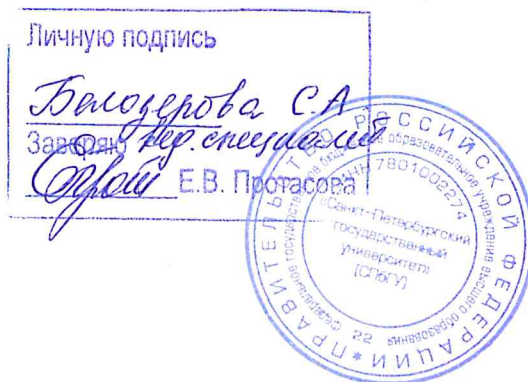 Личную подпись
Белозерова С.А.
Заверяю вед. специалист
Е.В. Протасова
ПРАВИТЕЛЬСТВО РОССИЙСКОЙ ФЕДЕРАЦИИ *
Федеральное государственное бюджетное образовательное учреждение высшего образования
ИНН 7801002274
«Санкт-Петербургский
государственный
университет»
(СПбГУ)
22